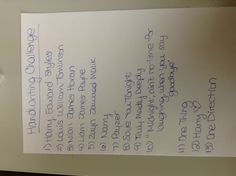 Handwriting Challenge
1) Harry Edward Styles
2) Louis William Tomlinson
3) Niall James Horan
4) Liam James Payne
5) Zayn Jawaad Malik
6) Narry
7) Payzer
8) Save You Tonight
9) Truly Madly Deeply
10) "Midnight, ain't no time for
laughing when you say
goodbye"
11) One Thing
12) Harry
13) One Direction